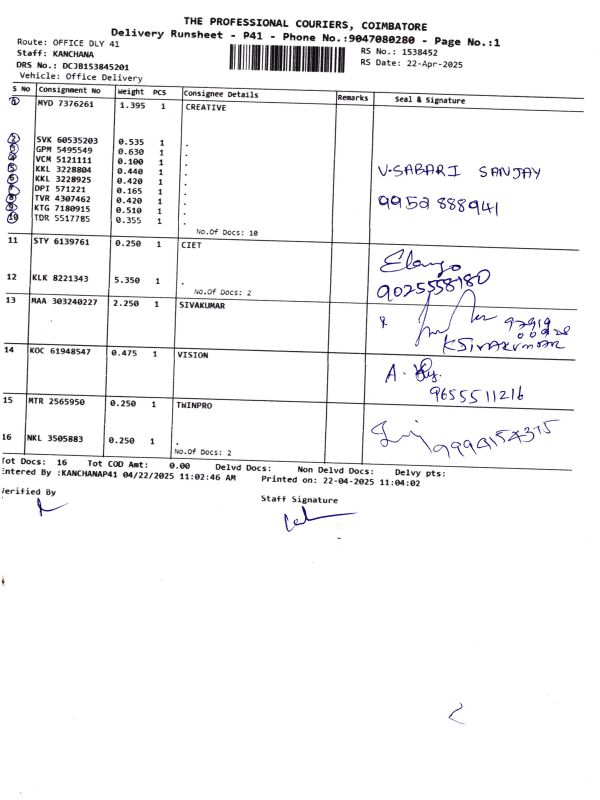 THE PROFESSIONAL COURIERS, COIMBATORE
Delivery Runsheet - P41 - Phone No.:9047080280 - Page No.:1
Route: OFFICE DLY 41
Staff: KANCHANA
RS No.: 1538452
DRS No.: DCJB153845201
RS Date: 22-Apr-2025
Vehicle: Office Delivery
S No Consignment No Weight PCS Consignee Details Remarks Seal & Signature
1 MYD 7376261 1.395 1 CREATIVE
2 SVK 60535203 0.535 1 .
3 GPM 5495549 0.630 1 .
4 VCM 5121111 0.100 1 .
5 KKL 3228804 0.440 1 . V.SABARI SANJAY
6 KKL 3228925 0.420 1 .
7 DPI 571221 0.165 1 .
8 TVR 4307462 0.420 1 .
9 KTG 7180915 0.510 1 . 9952888941
10 TDR 5517785 0.355 1 .
No.Of Docs: 10
11 STY 6139761 0.250 1 CIET
Elango
12 KLK 8221343 5.350 1 .
9025558180
No.Of Docs: 2
13 MAA 303240227 2.250 1 SIVAKUMAR
K SIVAKUMAR
14 KOC 61948547 0.475 1 VISION
A.
9655511216
15 MTR 2565950 0.250 1 TWINPRO
16 NKL 3505883 0.250 1 .
No.Of Docs: 2
Tot Docs: 16 Tot COD Amt: 0.00 Delvd Docs: Non Delvd Docs: Delvy pts:
Entered By :KANCHANAP41 04/22/2025 11:02:46 AM Printed on: 22-04-2025 11:04:02
Verified By
Staff Signature